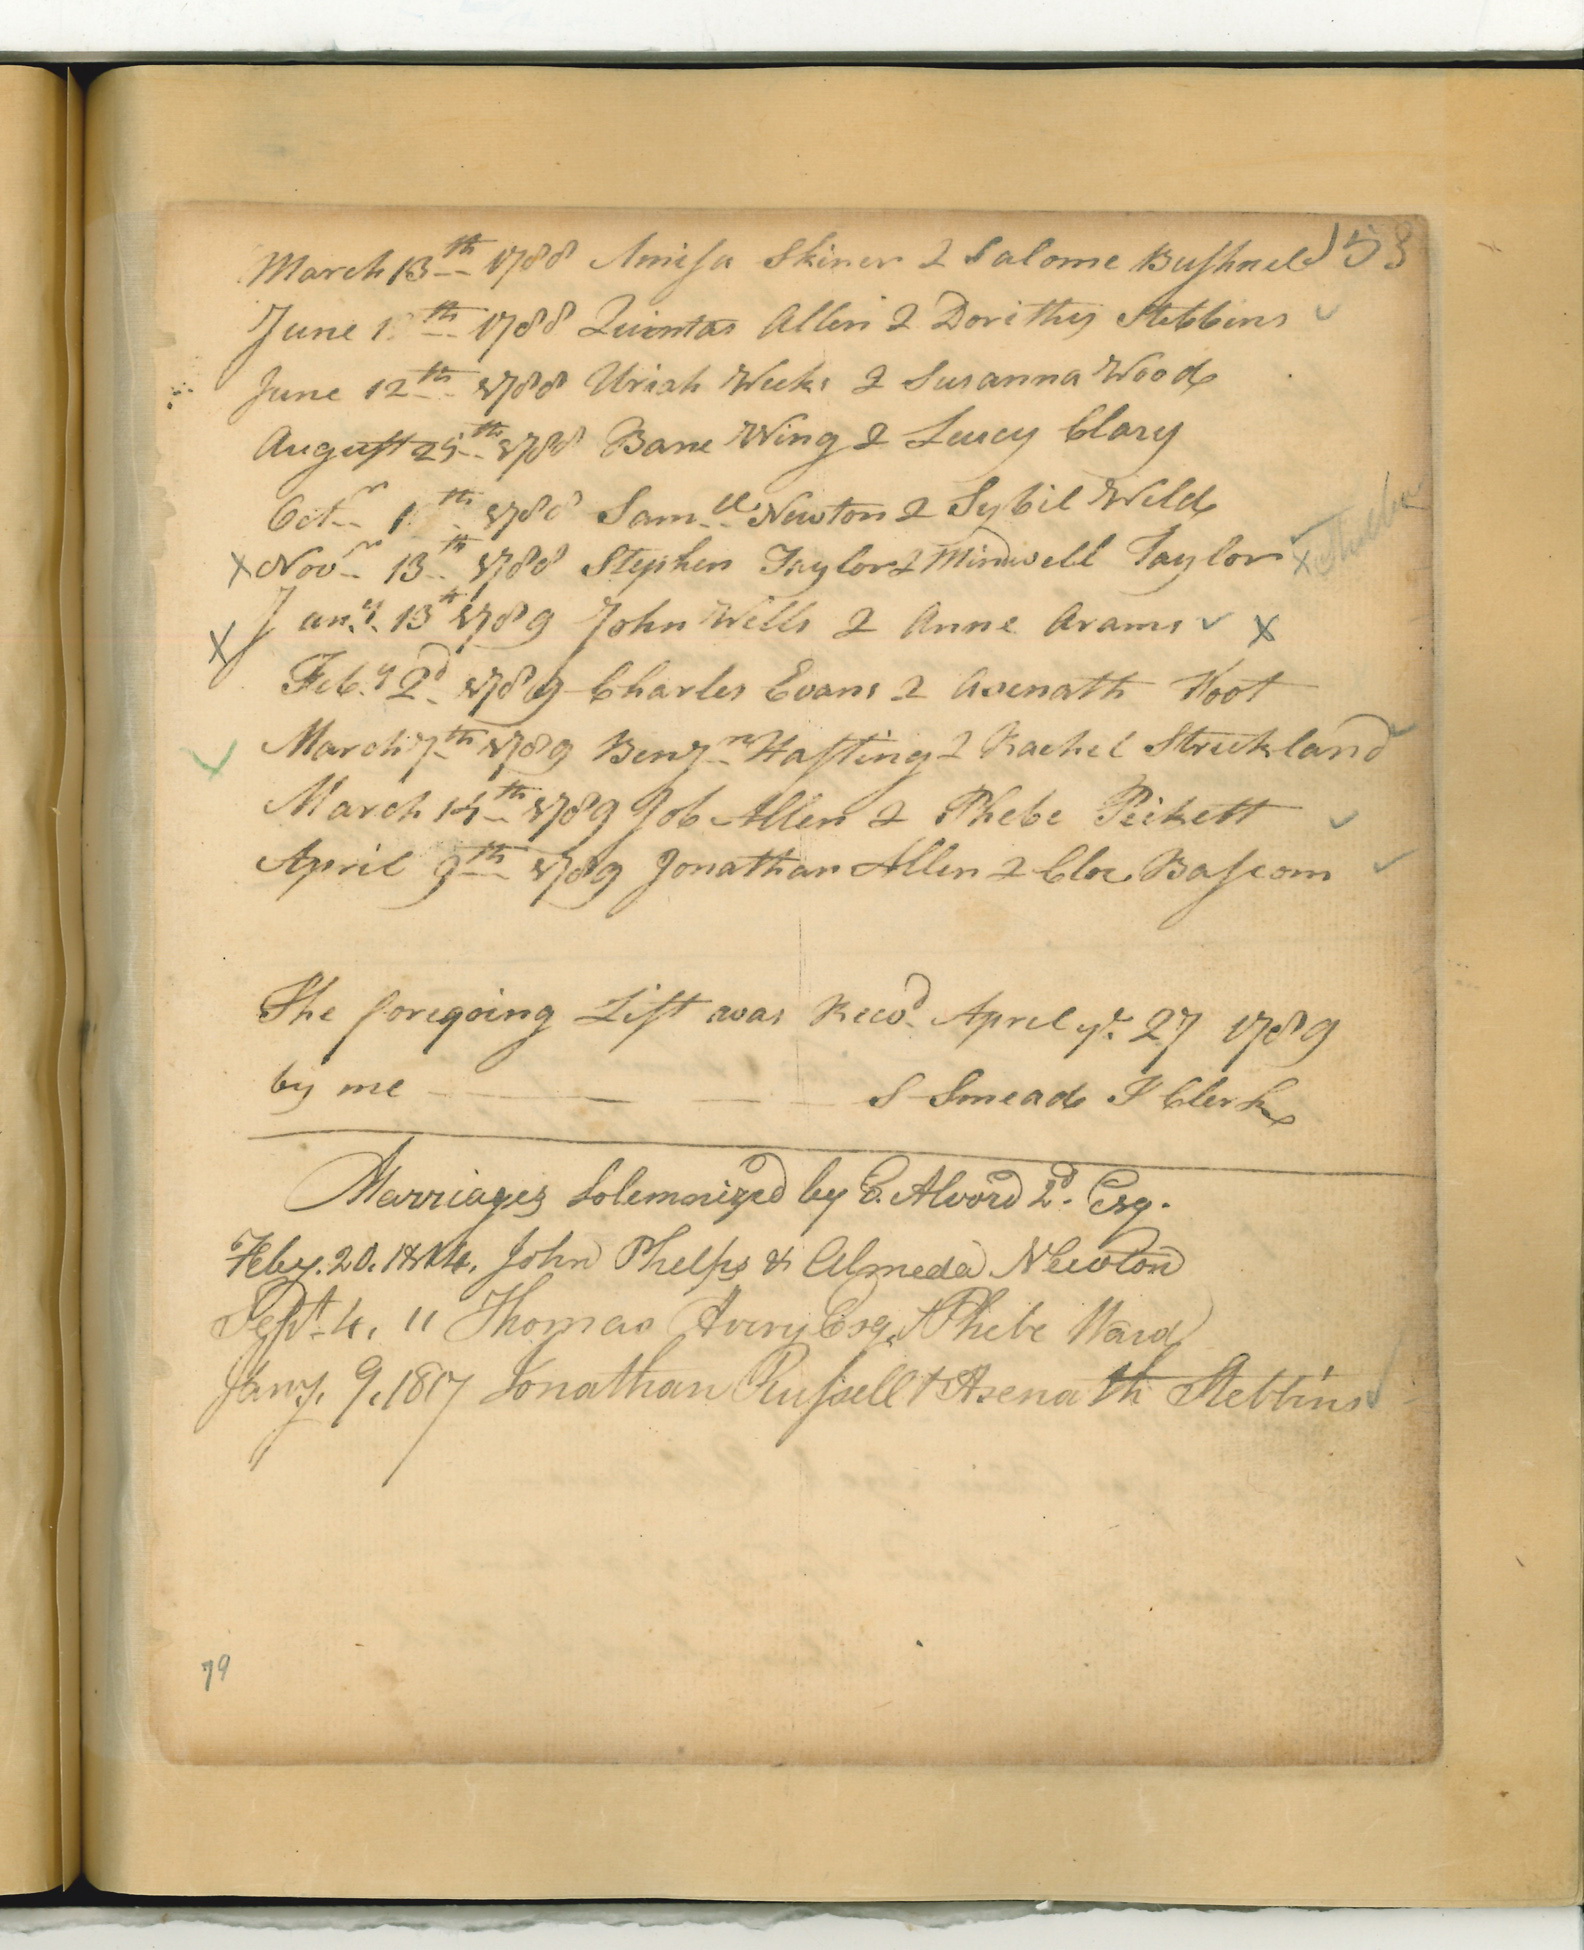 153
March 13th 1788 Amisa Skiner & Salome Bushnel
June th 1788 Quintas Allen & Dorithy Stebbins
June 12th 1788 Uriah Weeks & Susanna Wood
August 25th 1788 Bane Wing & Leucy Clary
Octr th 1788 Samll Newton & Sybil Weld
x Novr 13th 1788 Stephen Taylor & Mindwell Taylor x
x Jany 13th 1789 John Wells & Anne Arams x
Feby 2d 1789 Charles Evans & Asenath Root
March 7th 1789 Benjn Hasting & Rachel Strickland
March 14th 1789 Job Allen & Phebe Pickett
April 9th 1789 Jonathan Allen & Cloe Bascom
The foregoing List was Recod April ye 27 1789
by me S Smead T Clerk
Marriages Solemnized by E. Alvord 2d. Esq.
Feby. 20. 1814. John Phelps & Almeda Newton
Sept. 4. " Thomas Avery Esq. & Phebe Ward
Jany. 9. 1817 Jonathan Russell & Asenath Stebbins
79